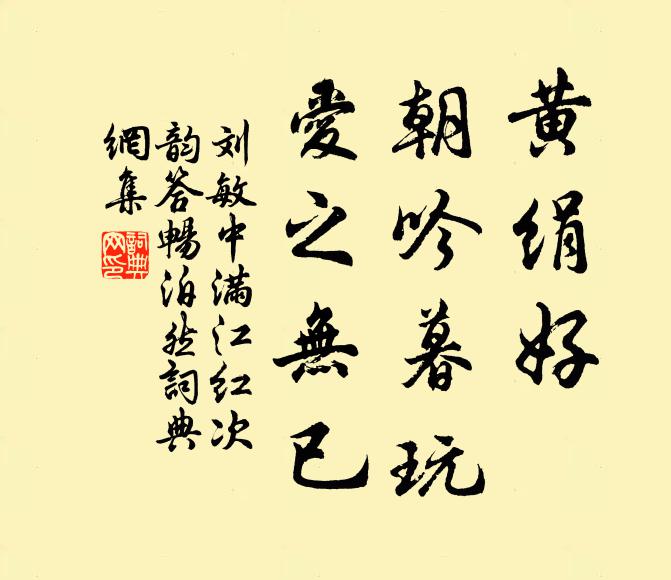 黄绢好
朝吟暮玩
愛之無已
刘敏中满江红次
韵答暢泊然詞典
網集
詞典
网印